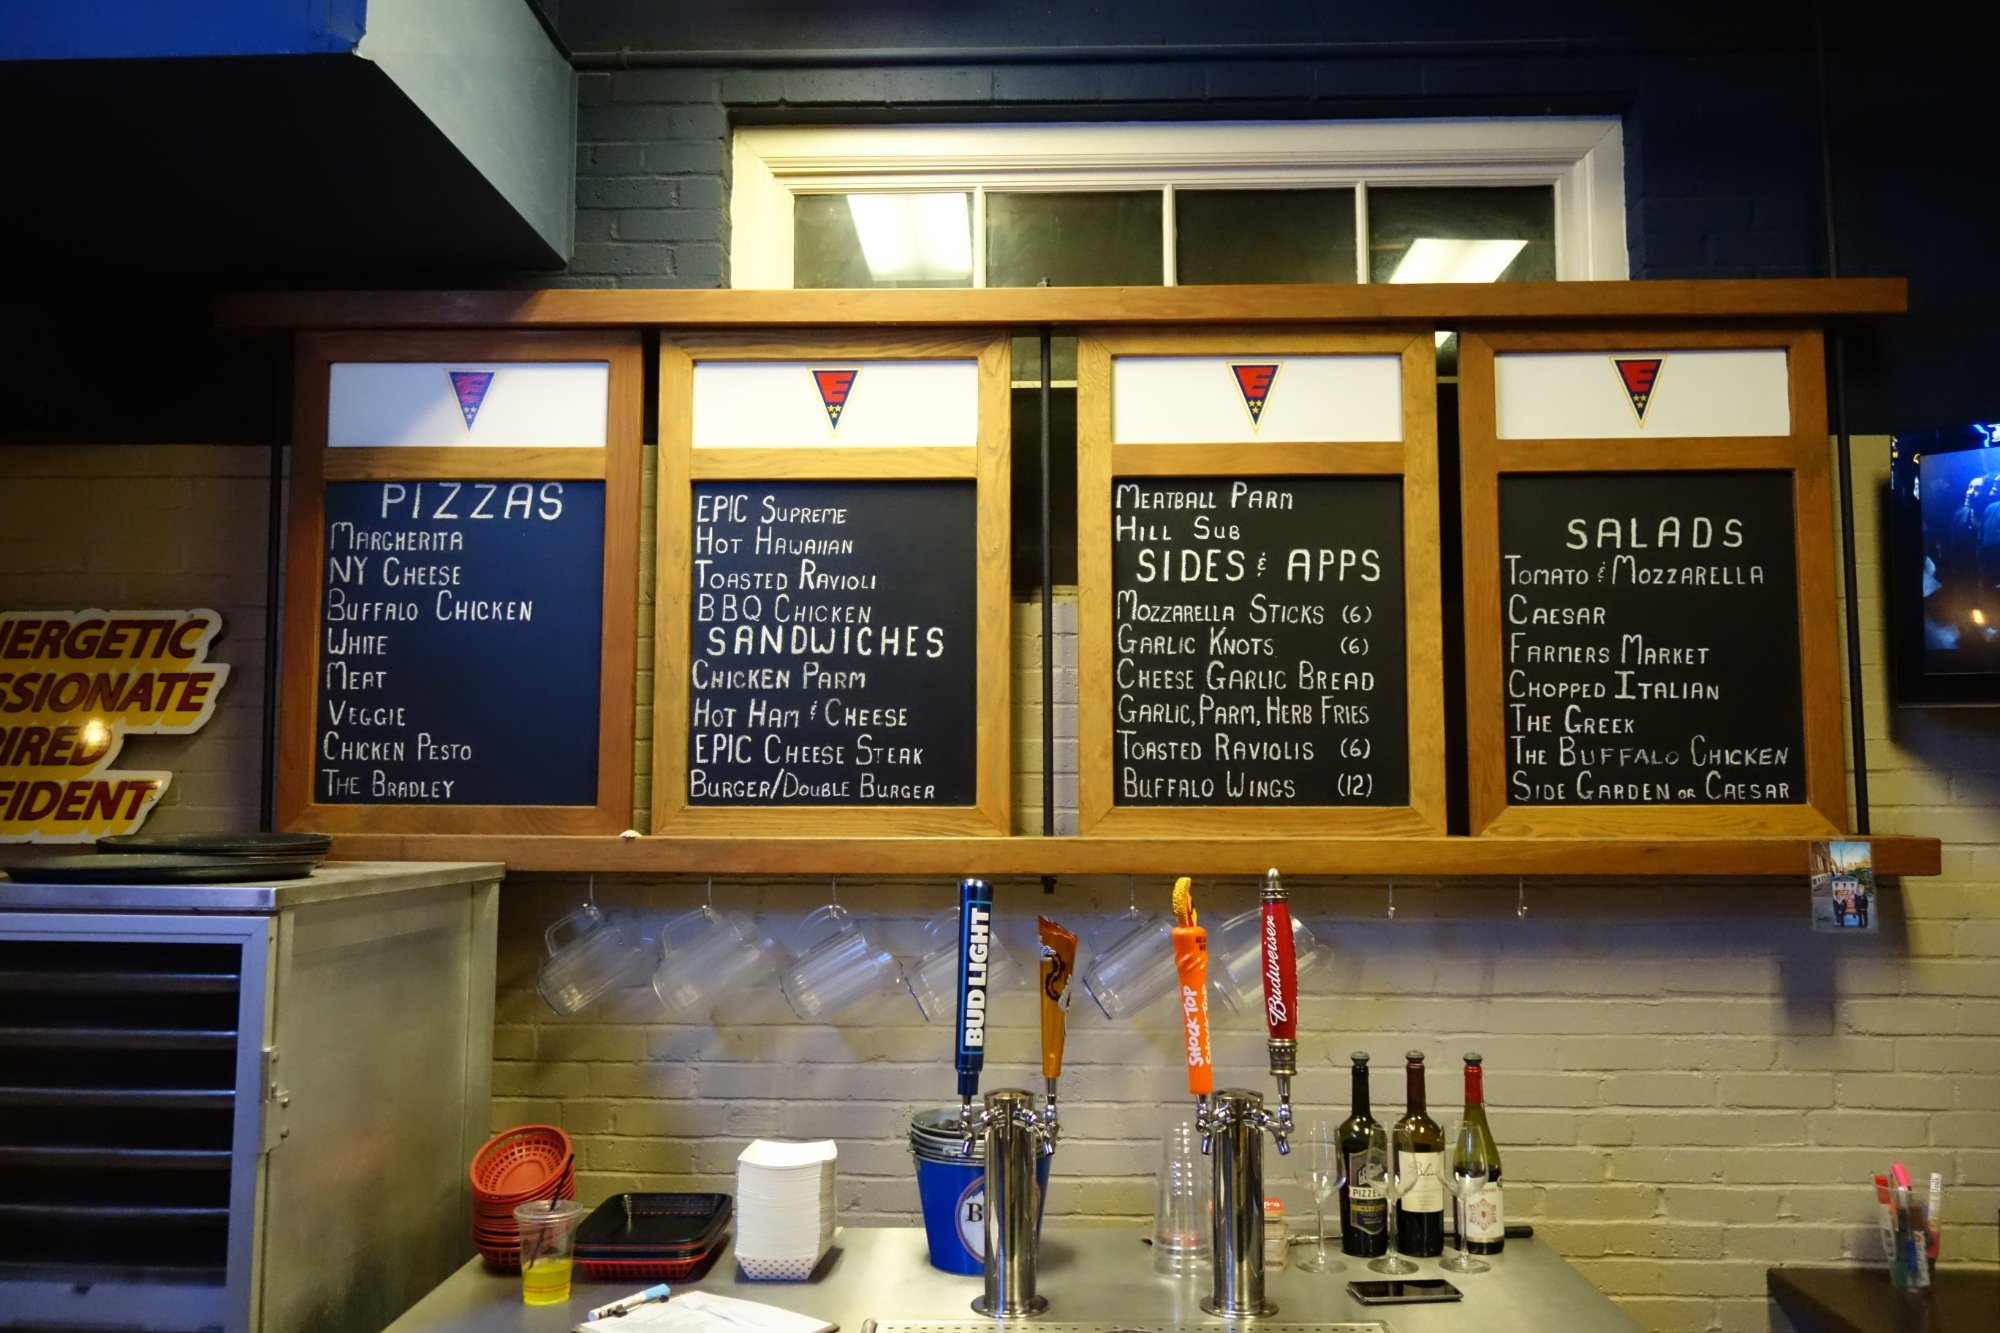 PIZZAS
MARGHERITA
NY CHEESE
BUFFALO CHICKEN
WHITE
MEAT
VEGGIE
CHICKEN PESTO
THE BRADLEY
EPIC SUPREME
HOT HAWAIIAN
TOASTED RAVIOLI
BBQ CHICKEN
SANDWICHES
CHICKEN PARM
HOT HAM & CHEESE
EPIC CHEESE STEAK
BURGER/DOUBLE BURGER
MEATBALL PARM
HILL SUB
SIDES & APPS
MOZZARELLA STICKS (6)
GARLIC KNOTS (6)
CHEESE GARLIC BREAD
GARLIC, PARM, HERB FRIES
TOASTED RAVIOLIS (6)
BUFFALO WINGS (12)
SALADS
TOMATO & MOZZARELLA
CAESAR
FARMERS MARKET
CHOPPED ITALIAN
THE GREEK
THE BUFFALO CHICKEN
SIDE GARDEN OR CAESAR
E
E
E
E
NERGETIC
SSIONATE
IRED
FIDENT
BUD LIGHT
SHOCK TOP
Budweiser
B